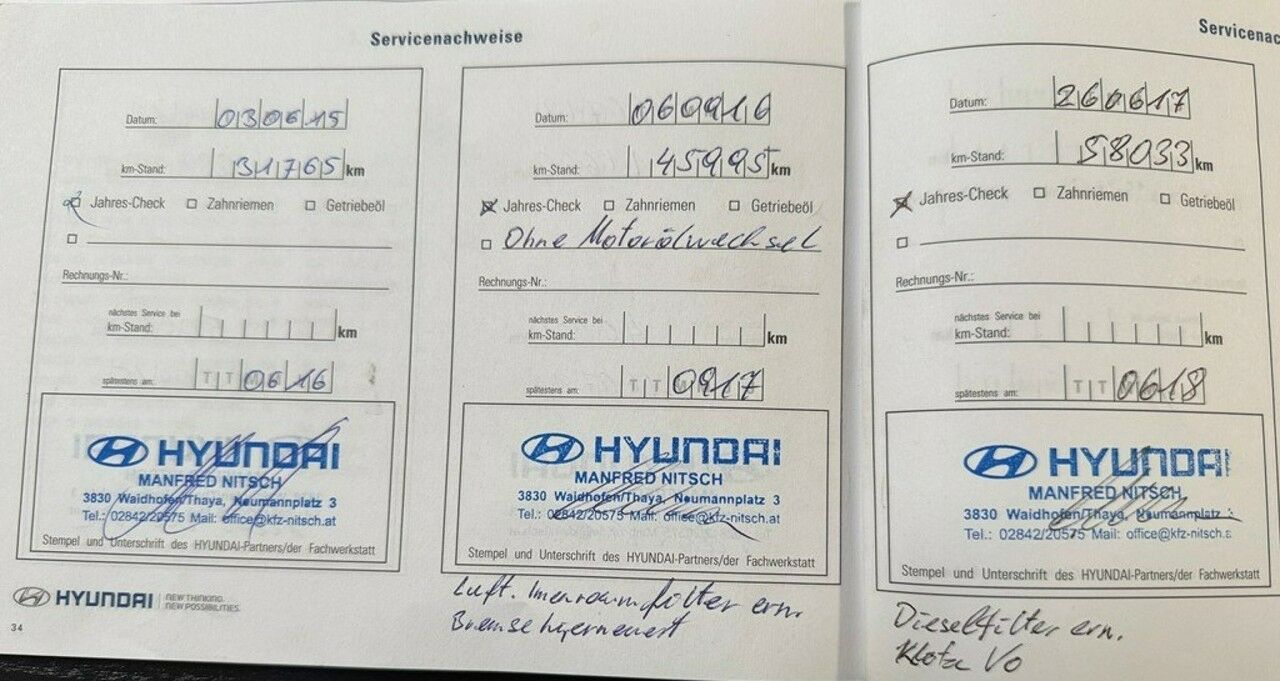 Servicenachweise
Datum: 030615
km-Stand: 31765 km
Jahres-Check Zahnriemen Getriebeöl
Rechnungs-Nr.:
nächstes Service bei
km-Stand: km
spätestens am: TT 0616
HYUNDAI
MANFRED NITSCH
3830 Waidhofen/Thaya, Neumannplatz 3
Tel.: 02842/20575 Mail: office@kfz-nitsch.at
Stempel und Unterschrift des HYUNDAI-Partners/der Fachwerkstatt
HYUNDAI NEW THINKING.
NEW POSSIBILITIES.
34
Datum: 060916
km-Stand: 45995 km
Jahres-Check Zahnriemen Getriebeöl
Ohne Motorölwechsel
Rechnungs-Nr.:
nächstes Service bei
km-Stand: km
spätestens am: TT 0917
HYUNDAI
MANFRED NITSCH
3830 Waidhofen/Thaya, Neumannplatz 3
Tel.: 02842/20575 Mail: office@kfz-nitsch.at
Stempel und Unterschrift des HYUNDAI-Partners/der Fachwerkstatt
Luft. Innenraumfilter ern.
Bremse erneuert
Servicenac
Datum: 260617
km-Stand: 58033 km
Jahres-Check Zahnriemen Getriebeöl
Rechnungs-Nr.:
nächstes Service bei
km-Stand: km
spätestens am: TT 0618
HYUNDAI
MANFRED NITSCH
3830 Waidhofen/Thaya, Neumannplatz 3
Tel.: 02842/20575 Mail: office@kfz-nitsch.a
Stempel und Unterschrift des HYUNDAI-Partners/der Fachwerkstatt
Dieselfilter ern.